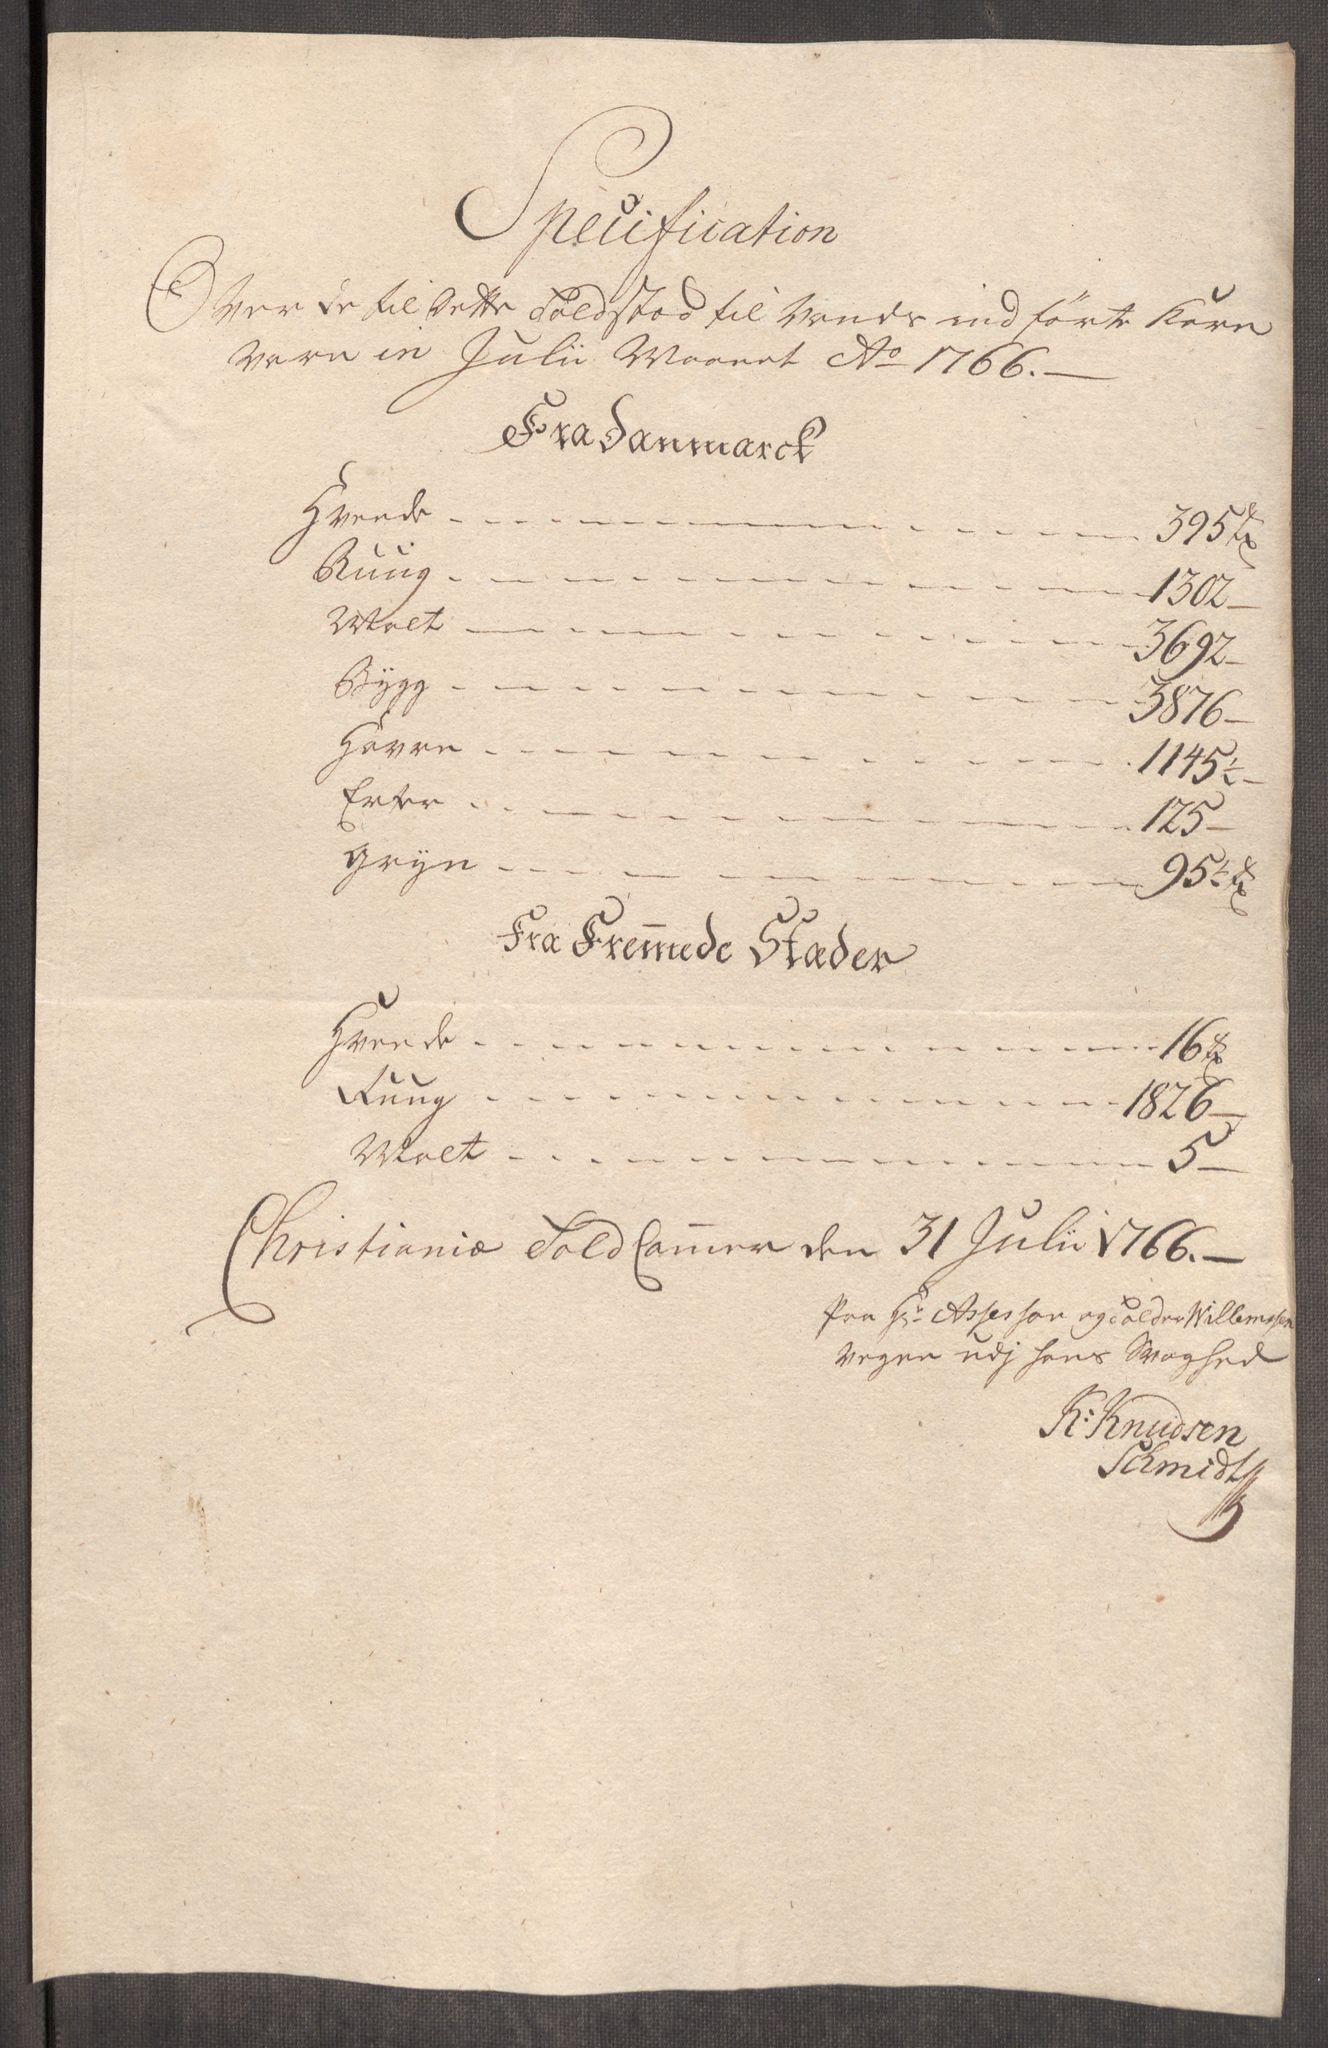 Specification
Over de til dette Toldstæd til Vands indførte Korn
Vare in Julii Maanet Ao 1766.
Fra Danmarck
Hvede - - - 395 tr
Ruug - - - 1302 -
Malt - - - 3692 -
Bÿgg - - - 3876 -
Havre - - - 1145½ -
Erter - - - 125 -
Grÿn - - - 95½ tr
Fra Frem̄ede Stæder
Hvede - - - 16 tr
Ruug - - - 1826 -
Malt - - - 5 -
Christiania Told Cam̄er den 31 Julii 1766. -
Paa Hr Assessor og Tolder Willemssen
Vegne udj hans Svaghed
K: Knudsen
Schmidt